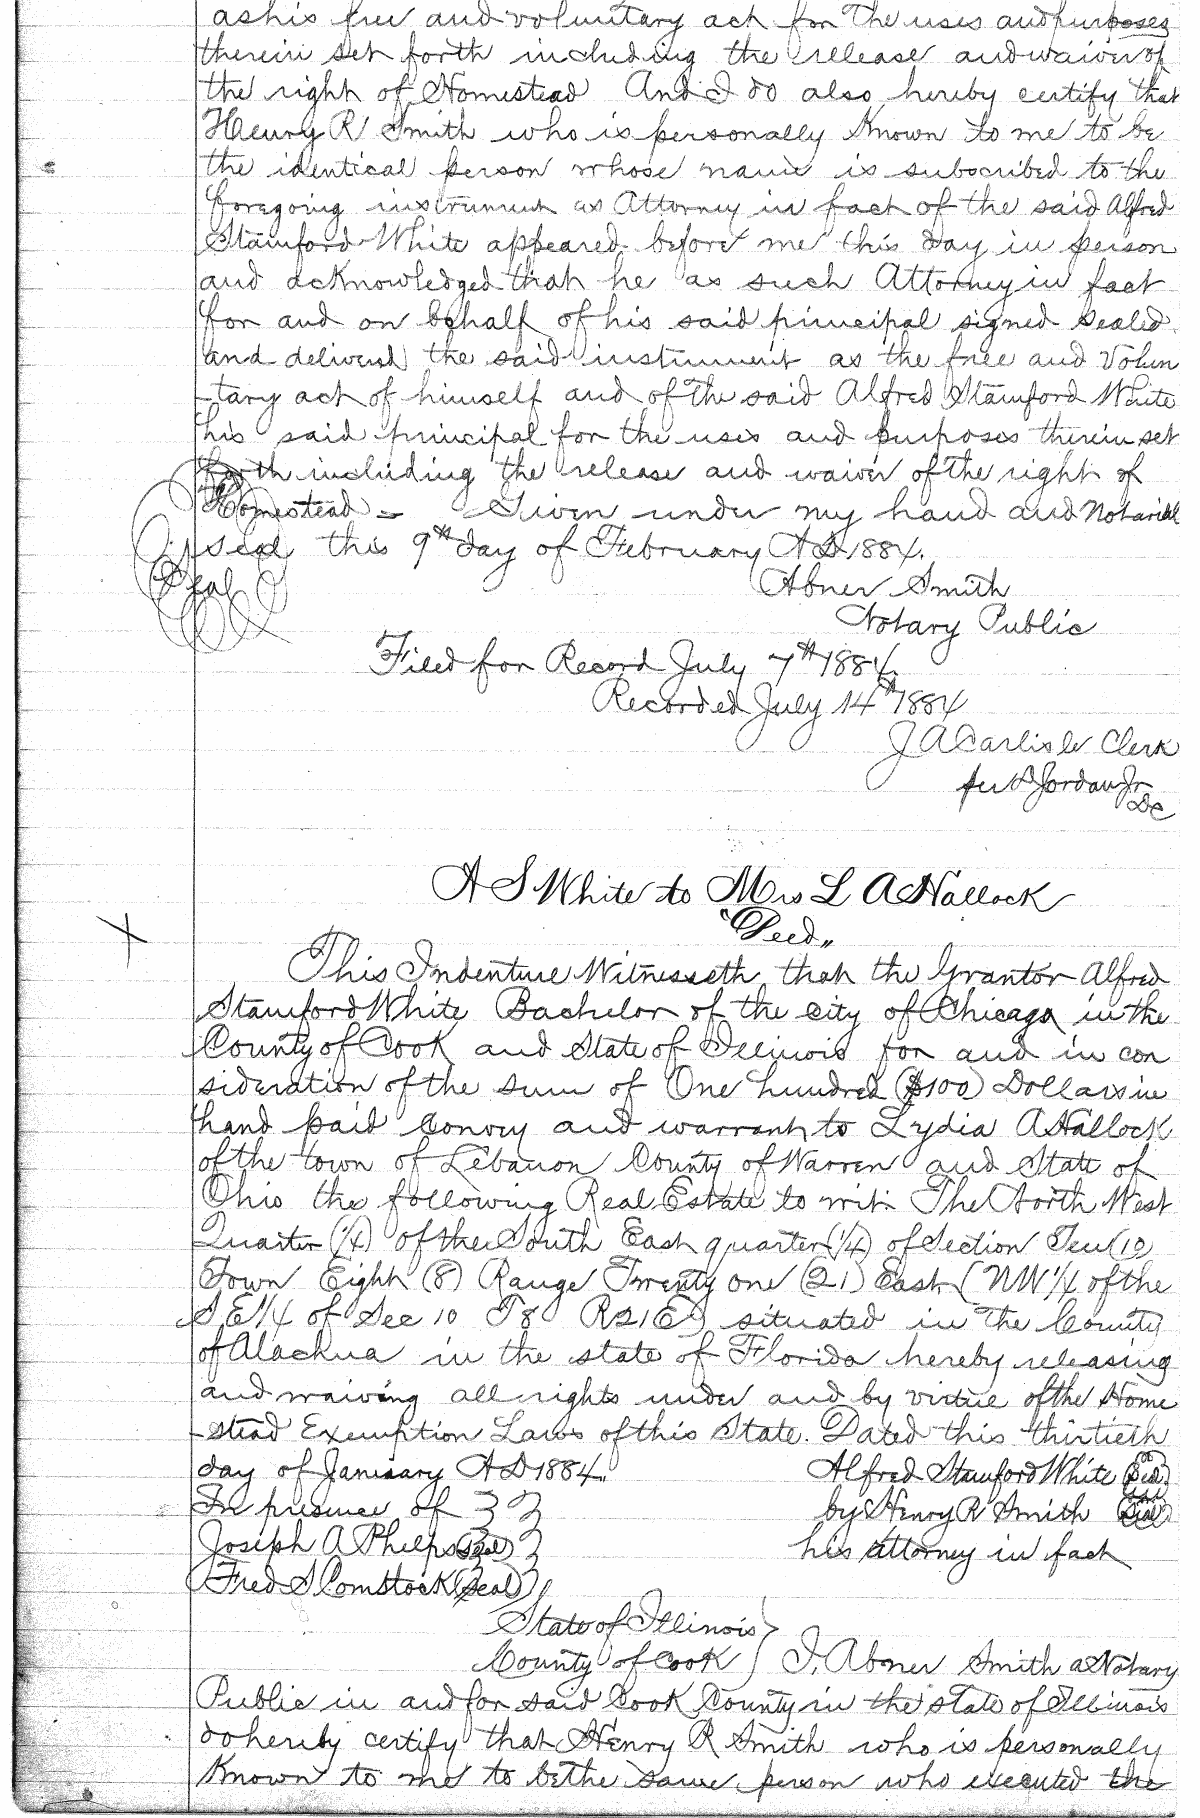 as his free and voluntary act for the uses and purposes
therein set forth including the release and waiver of
the right of Homestead And I do also hereby certify that
Henry R Smith who is personally Known to me to be
the identical person whose name is subscribed to the
foregoing instrument as Attorney in fact of the said Alfred
Stamford White appeared before me this day in person
and acknowledged that he as such Attorney in fact
for and on behalf of his said principal signed sealed
and delivered the said instrument as the free and Volun
tary act of himself and of the said Alfred Stamford White
his said principal for the uses and purposes therein set
forth including the release and waiver of the right of
Homestead = Given under my hand and Notarial
seal this 9th day of February A D 1884.
Seal
Abner Smith
Notary Public
Filed for Record July 7th 1884
Recorded July 14th 1884
J A Carlisle Clerk
Jordan Jr
DC
A S White to Mrs L A Hallock
"Deed"
This Indenture Witnesseth that the Grantor Alfred
Stamford White Bachelor of the city of Chicago in the
County of Cook and State of Illinois for and in con
sideration of the sum of One hundred ($100) Dollars in
hand paid Convey and warrant to Lydia A Hallock
of the town of Lebanon County of Warren and State of
Ohio the following Real Estate to wit The North West
Quarter (1/4) of the South East quarter (1/4) of Section Ten (10
Town Eight (8) Range Twenty one (21) East (NW 1/4 of the
S.E 1/4 of Sec 10 T8 R21E) situated in the County
of Alachua in the state of Florida hereby releasing
and waiving all rights under and by virtue of the Home
stead Exemption Laws of this State. Dated this thirtieth
day of January A D 1884. Alfred Stamford White (Seal)
In presence of by Henry R Smith (Seal)
Joseph A Phelps (Seal) his attorney in fact
Fred S Comstock (Seal)
State of Illinois
County of Cook } I, Abner Smith a Notary
Public in and for said Cook County in the state of Illinois
do hereby certify that Henry R Smith who is personally
Known to me to be the same person who executed the